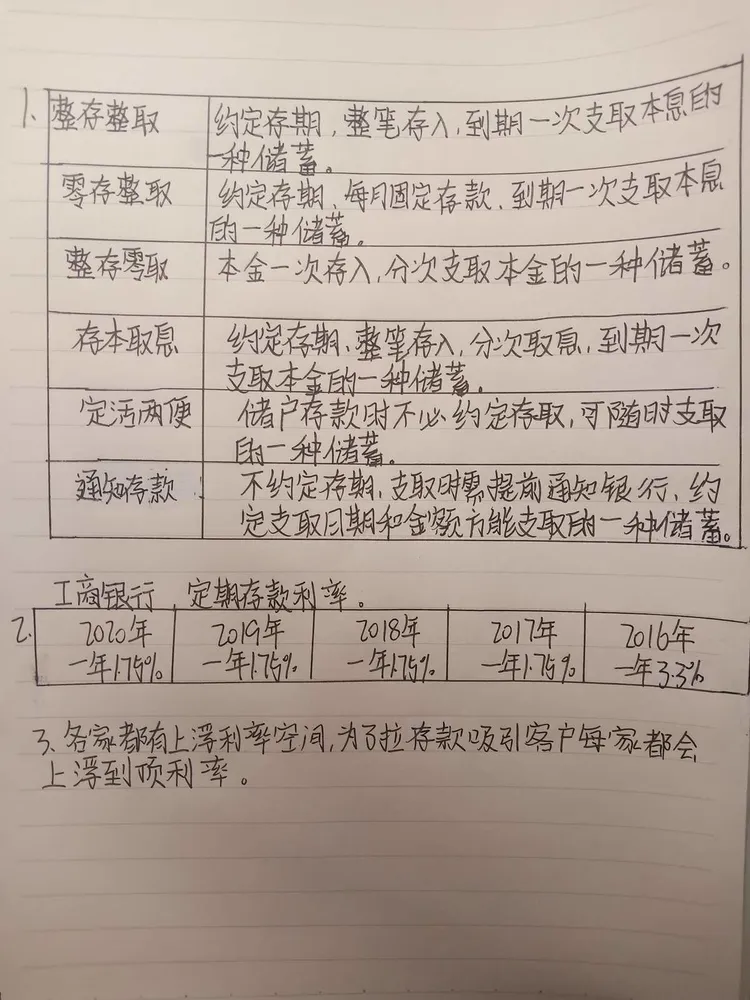 1、整存整取 约定存期，整笔存入，到期一次支取本息的
一种储蓄。
零存整取 约定存期、每月固定存款、到期一次支取本息
的一种储蓄。
整存零取 本金一次存入，分次支取本金的一种储蓄。
存本取息 约定存期、整笔存入，分次取息，到期一次
支取本金的一种储蓄。
定活两便 储户存款时不必约定存取，可随时支取
的一种储蓄。
通知存款 不约定存期，支取时需提前通知银行、约
定支取日期和金额方能支取的一种储蓄。
工商银行，定期存款利率。
2、2020年 2019年 2018年 2017年 2016年
一年1.75% 一年1.75% 一年1.75% 一年1.75% 一年3.3%
3、各家都有上浮利率空间，为了拉存款吸引客户每家都会
上浮到顶利率。